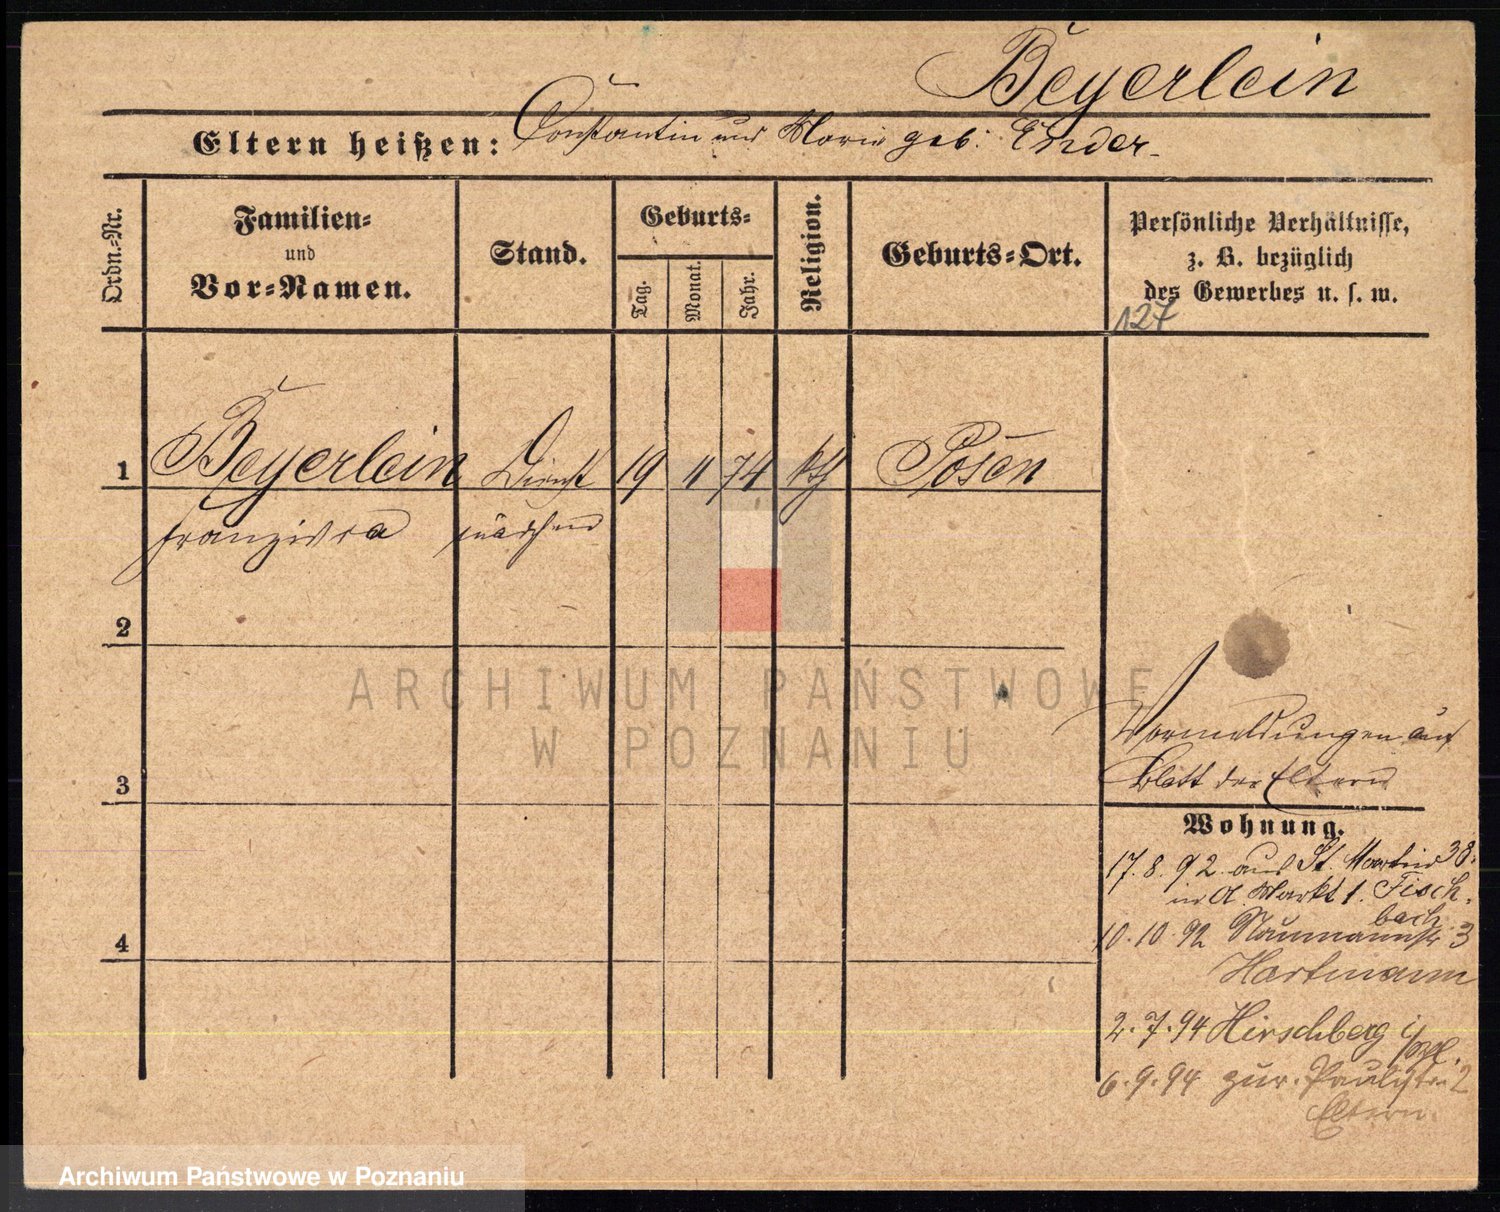 Beyerlein
Eltern heißen: Constantin und Marie geb. Ender.
Ordn.-Nr.
Familien-
und
Vor-Namen.
Stand.
Geburts-
Tag.
Monat.
Jahr.
Religion.
Geburts-Ort.
Persönliche Verhältnisse,
z. B. bezüglich
des Gewerbes u. s. w.
127
1 Beyerlein Dienst 19 11 74 kth Posen
Franziska mädchen
2
ARCHIWUM PAŃSTWOWE
W POZNANIU
Vormeldungen auf
Blatt der Eltern
3
Wohnung.
17. 8. 92 aus St. Martin 38.
in A. Markt 1. Fisch-
bach
4
10. 10. 92 Naumannstr 3
Hartmann
2. 7. 94 Hirschberg i/
6. 9. 94 zur. Paulistr. 2
Eltern.
Archiwum Państwowe w Poznaniu